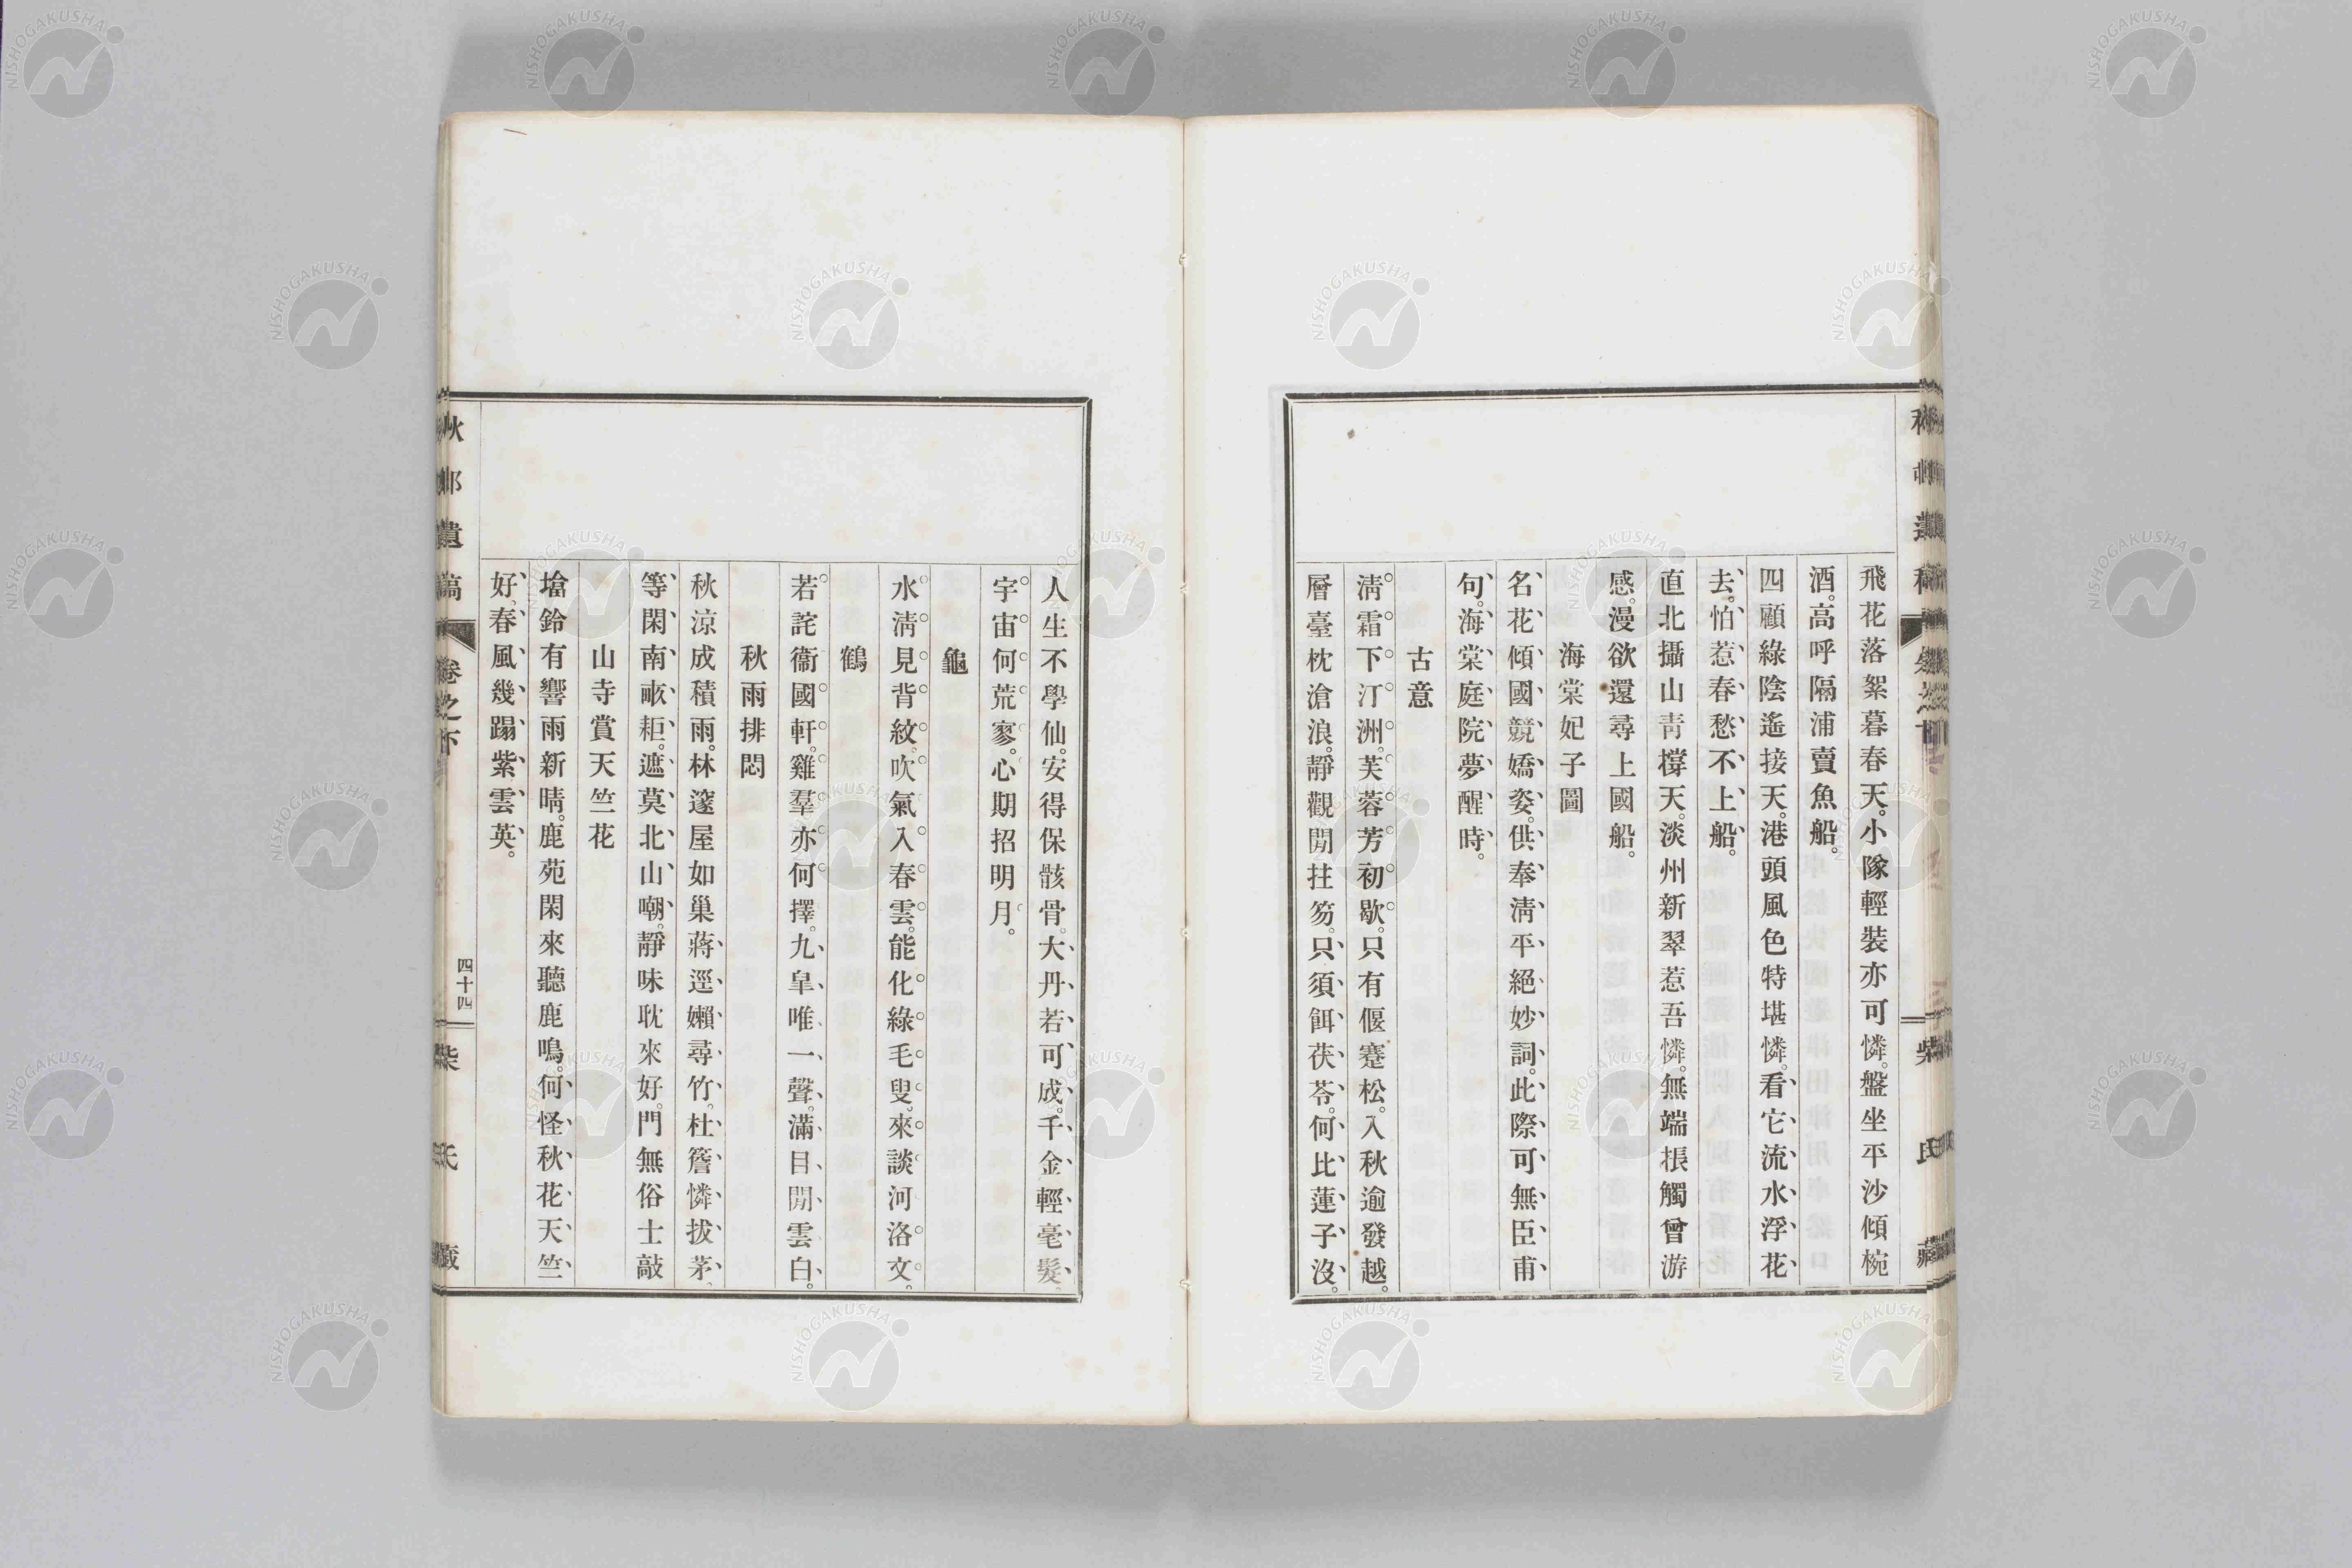 飛花落絮暮春天。小隊輕裝亦可憐。盤坐平沙傾椀
酒。高呼隔浦賣魚船。
四顧綠陰遙接天。港頭風色特堪憐。看它流水浮花
去。怕惹春愁不上船。
直北攝山靑撐天。淡州新翠惹吾憐。無端棖觸曾游
感。漫欲還尋上國船。
海棠妃子圖
名花傾國競嬌姿。供奉淸平絕妙詞。此際可無臣甫
句。海棠庭院夢醒時。
古意
淸霜下汀洲。芙蓉芳初歇。只有偃蹇松。入秋逾發越。
層臺枕滄浪。靜觀閒拄笏。只須餌茯苓。何比蓮子沒。
人生不學仙。安得保骸骨。大丹若可成。千金輕毫髮。
宇宙何荒寥。心期招明月。
龜
水淸見背紋。吹氣入春雲。能化綠毛叟。來談河洛文。
鶴
若詫衞國軒。雞羣亦何擇。九皐唯一聲。滿目閒雲白。
秋雨排悶
秋涼成積雨。林邃屋如巢。蔣逕嬾尋竹。杜簷憐拔茅。
等閑南畝耟。遮莫北山嘲。靜味耽來好。門無俗士敲
山寺賞天竺花
墖鈴有響雨新晴。鹿苑閑來聽鹿鳴。何怪秋花天竺
好。春風幾蹋紫雲英。
秋邨遺稿
卷之下
四十四
柴氏藏
NISHOGAKUSHA